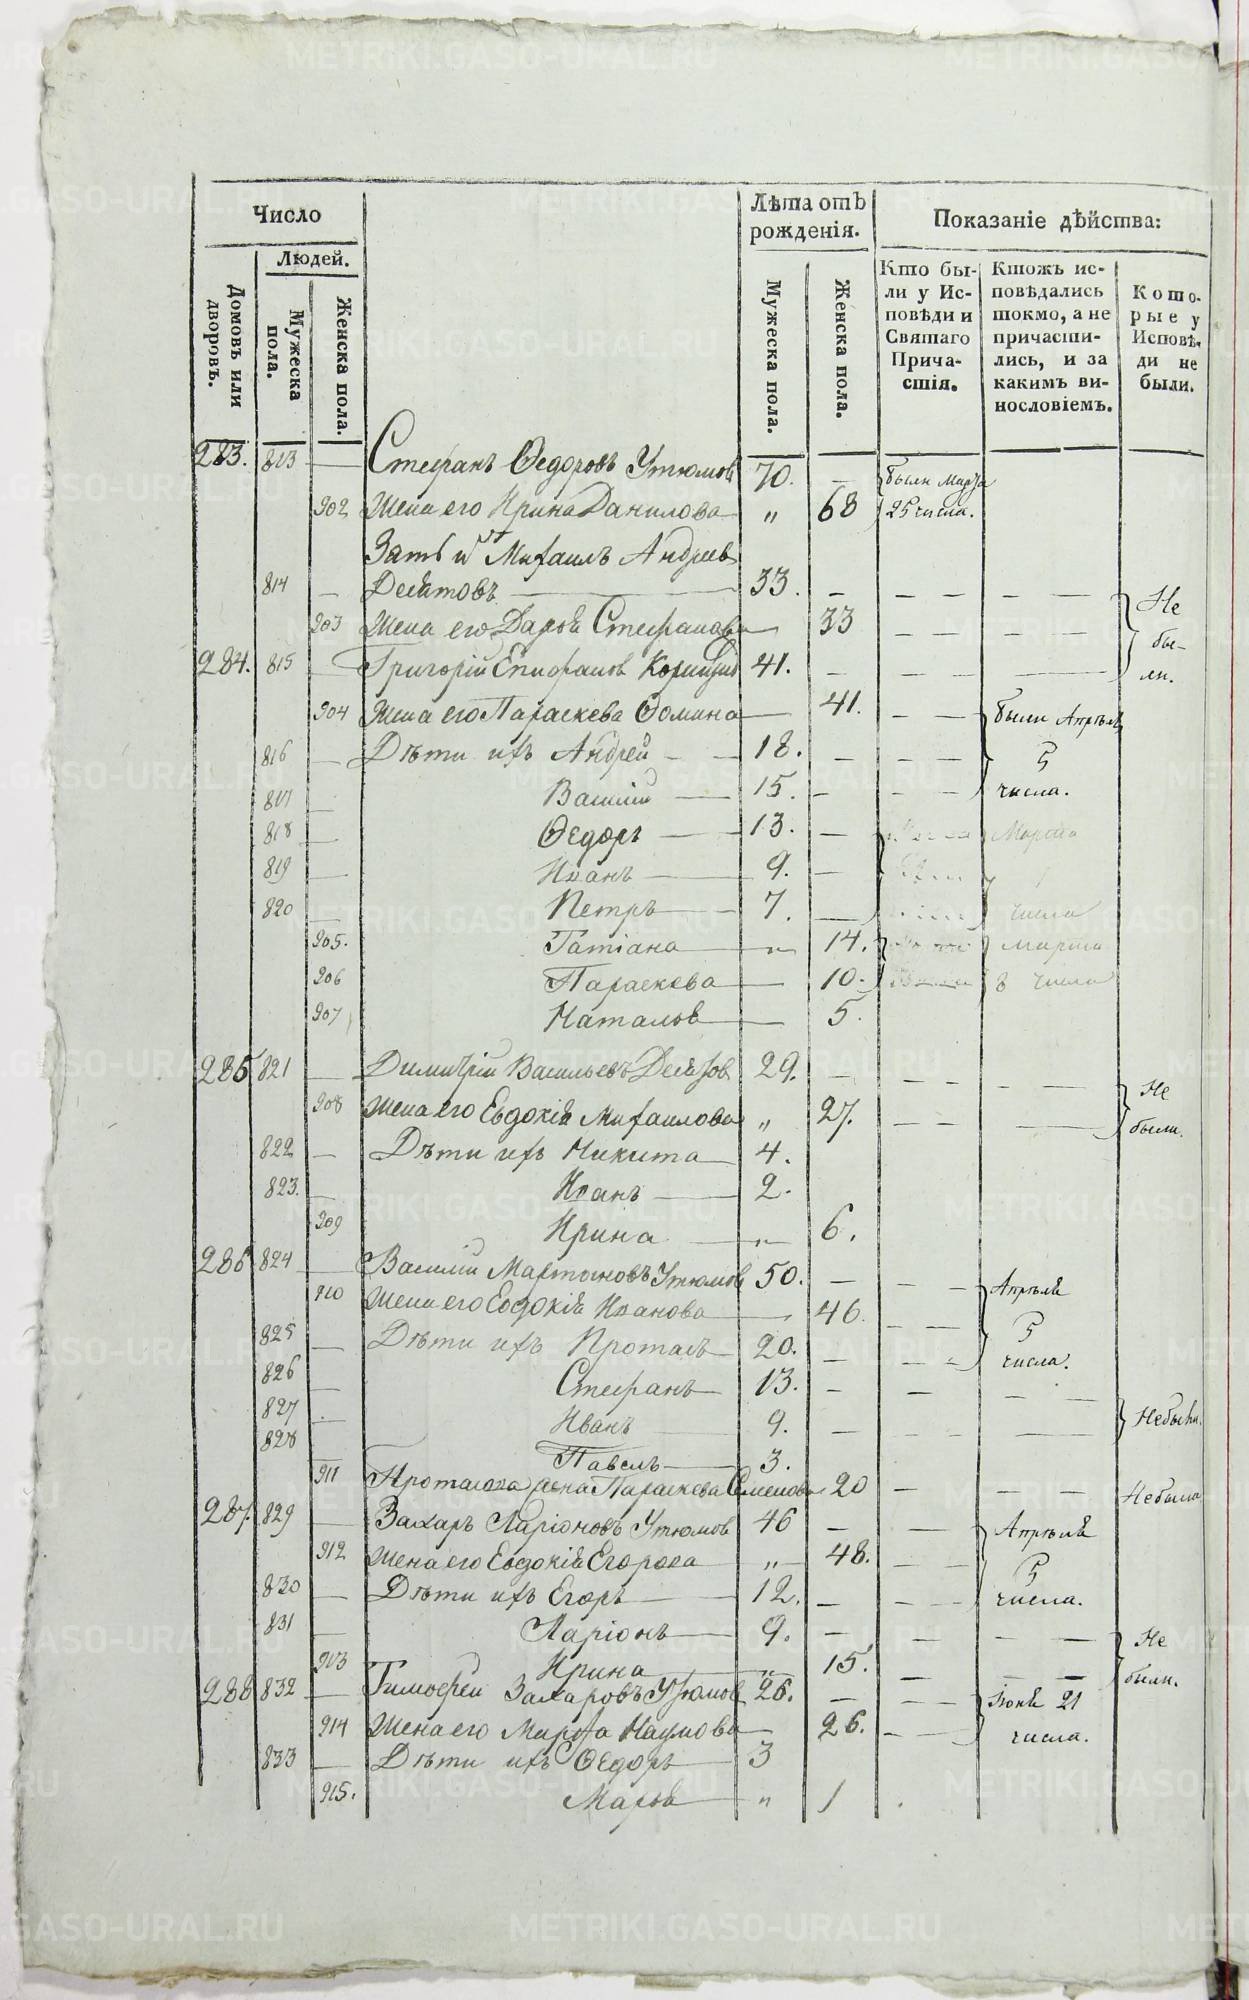 Число
Людей.
Домовъ или дворовъ.
Мужеска пола.
Женска пола.
Лѣта отъ
рожденія.
Мужеска пола.
Женска пола.
Показаніе дѣйства:
Кто бы-
ли у Ис-
повѣди и
Святаго
Прича-
стія.
Ктожъ ис-
повѣдались
токмо, а не
причасти-
лись, и за
какимъ ви-
нословіемъ.
Кото-
рые у
Исповѣ-
ди не
были.
283. 813 — Стефанъ Ѳедоровъ Утюмов 70. — были Марта
902 Жена его Ирина Данилова „ 68 25 числа.
Зять и Михаилъ Андреев
814 — Десятовъ — 33. — — — — — — Не
903 Жена его Дарья Стефанова — 33 — — — — бы-
284. 815 — Григорій Епифанов 41. — — — — ли.
904 Жена его Параскева Ѳомина — 41. — — были Апрѣля
816 — Дѣти ихъ Андрей — — 18. — — — 5
817 — Василій — 15. — — — числа.
818 — Ѳедоръ — 13. — Марта
819 — Иванъ — 9. —
820 — Петръ — 7. — числа
905. Татіана — „ 14. Марта
906 Параскева — 10. 8 числа
907 Наталья — 5.
285 821 — Димитрій Васильевъ Десятов 29. — — — — — Не
908 Жена его Евдокія Михаилова „ 27. — — — были.
822 — Дѣти ихъ Никита — 4.
823. — Иванъ — 2.
909 Ирина — „ 6.
286 824 — Василій Мартыновъ Утюмов 50. — — Апрѣля
910 Жена его Евдокія Иванова — 46. — — 5
825 — Дѣти ихъ Протасъ — 20. — — — числа.
826 — Стефанъ — 13. — — — —
827 — Иванъ — 9. — — — Небыли.
828 Павелъ — 3.
911 Протасова жена Параскева Семенова 20 — — — Небыла
287. 829 — Захаръ Ларіоновъ Утюмов 46 — — — Апрѣля
912 Жена его Евдокія Егорова „ 48. — — 5
830 — Дѣти ихъ Егоръ — 12. — — — числа.
831 — Ларіонъ — 9. — — — — Не
913 Ирина — „ 15. — — — были.
288 832 — Тимофей Захаровъ Утюмов 26. — — — Іюня 21
914 Жена его Марфа Наумова — 26. — — числа.
833 — Дѣти ихъ Ѳедоръ — 3
915. Марья — „ 1
METRIKI.GASO-URAL.RU